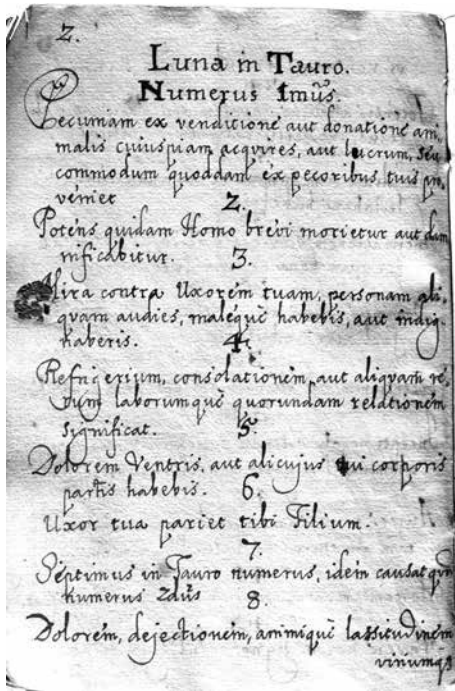 2.
Luna in Tauro.
Numerus 1mus.
Pecuniam ex venditione aut donatione ani,
malis cuiuspiam acqvires, aut lucrum, seu
commodum quoddam ex pecoribus, tuis pro,
veniet
2.
Potens quidam Homo brevi morietur aut dam
nificabitur.
3.
Mira contra Uxorem tuam, personam ali,
qvam audies, maleque habebis, aut indig,
haberis.
4.
Refrigerium, consolationem, aut aliqvam re,
rum laborumque quorundam relationem
significat.
5.
Dolorem Ventris, aut alicujus tui corporis
partis habebis.
6.
Uxor tua pariet tibi Filium.
7.
Septimus in Tauro numerus, idem causat qvã
numerus 2dus
8.
Dolorem, dejectionem, animique lassitudinem
viriumqз